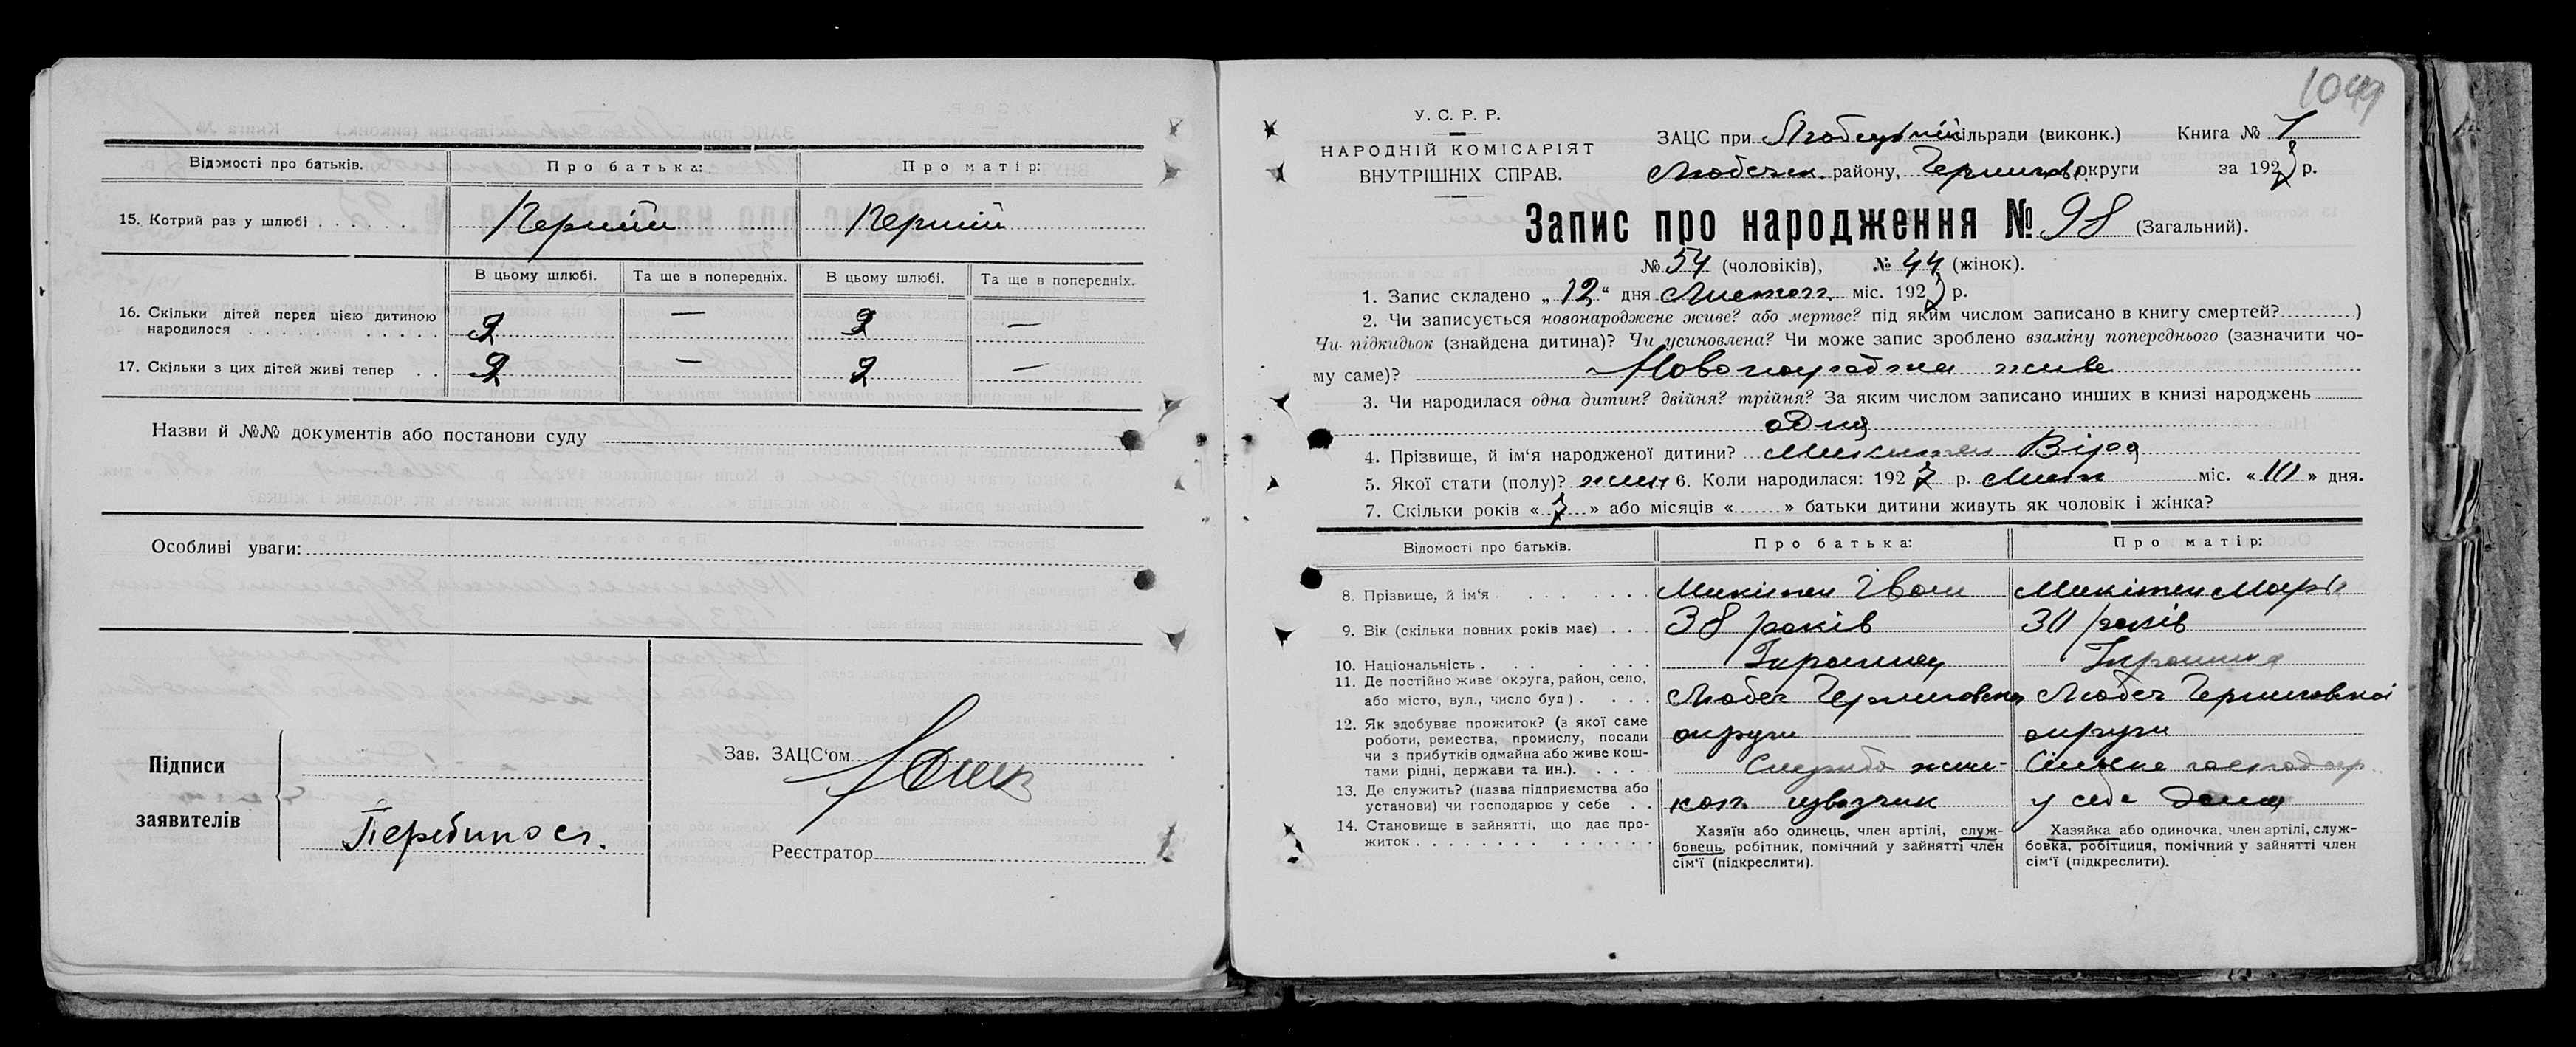 Відомості про батьків. Про батька: Про матір:
15. Котрий раз у шлюбі Перший Перший
В цьому шлюбі. Та ще в попередніх. В цьому шлюбі. Та ще в попередніх.
16. Скільки дітей перед цією дитиною
народилося 2 — 2 —
17. Скільки з цих дітей живі тепер 2 — 2 —
Назви й №№ документів або постанови суду
Особливі уваги:
Підписи
заявителів
Зав. ЗАЦС‘ом
Реєстратор
1049
У. С. Р. Р.
НАРОДНІЙ КОМІСАРІЯТ
ВНУТРІШНІХ СПРАВ.
ЗАЦС при сільради (виконк.) Книга № 1
Любечськ. району, Чернигівс. округи за 1927 р.
Запис про народження № 98 (Загальний).
№ 54 (чоловіків), № 44 (жінок).
1. Запис складено „12“ дня Листоп. міс. 1927 р.
2. Чи записується новонароджене живе? або мертве? під яким числом записано в книгу смертей? )
Чи підкидьок (знайдена дитина)? Чи усиновлена? Чи може запис зроблено взаміну попереднього (зазначити чо-
му саме)? живе
3. Чи народилася одна дитин? двійня? трійня? За яким числом записано инших в книзі народжень
одна
4. Прізвище, й ім‘я народженої дитини? Віра
5. Якої стати (полу)? жин 6. Коли народилася: 1927 р. Лист міс. «10» дня.
7. Скільки років «7» або місяців « » батьки дитини живуть як чоловік і жінка?
Відомості про батьків. Про батька: Про матір:
8. Прізвище, й ім‘я Іван
9. Вік (скільки повних років має) 38 років 30 років
10. Національність
11. Де постійно живе округа, район, село,
або місто, вул., число буд). Любеч Любеч Черниговскої
12. Як здобуває прожиток? (з якої саме
роботи, ремества, промислу, посади округи округи
чи з прибутків одмайна або живе кош-
тами рідні, держави та ин.). Служба Сільське господар.
13. Де служить? (назва підприємства або
установи) чи господарює у себе у себе дома
14. Становище в зайнятті, що дає про-
житок
Хазяїн або одинець, член артілі, служ-
бовець, робітник, помічний у зайнятті член
сім‘ї (підкреслити).
Хазяйка або одиночка. член артілі, служ-
бовка, робітциця, помічний у зайнятті член
сім‘ї (підкреслити).